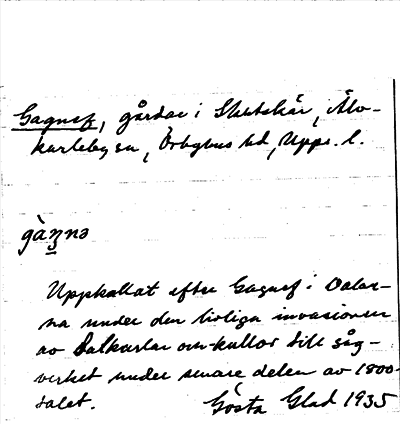 Gagnef, gårdar i Skutskär, Älv-
karleby sn, Örbyhus hd, Upps. l.
gàn̥nə
Uppkallat efter Gagnef i Dalar-
na under den livliga invasionen
av dalkarlar om kullor till såg-
verket under senare delen av 1800-
talet.
Gösta Glad 1935